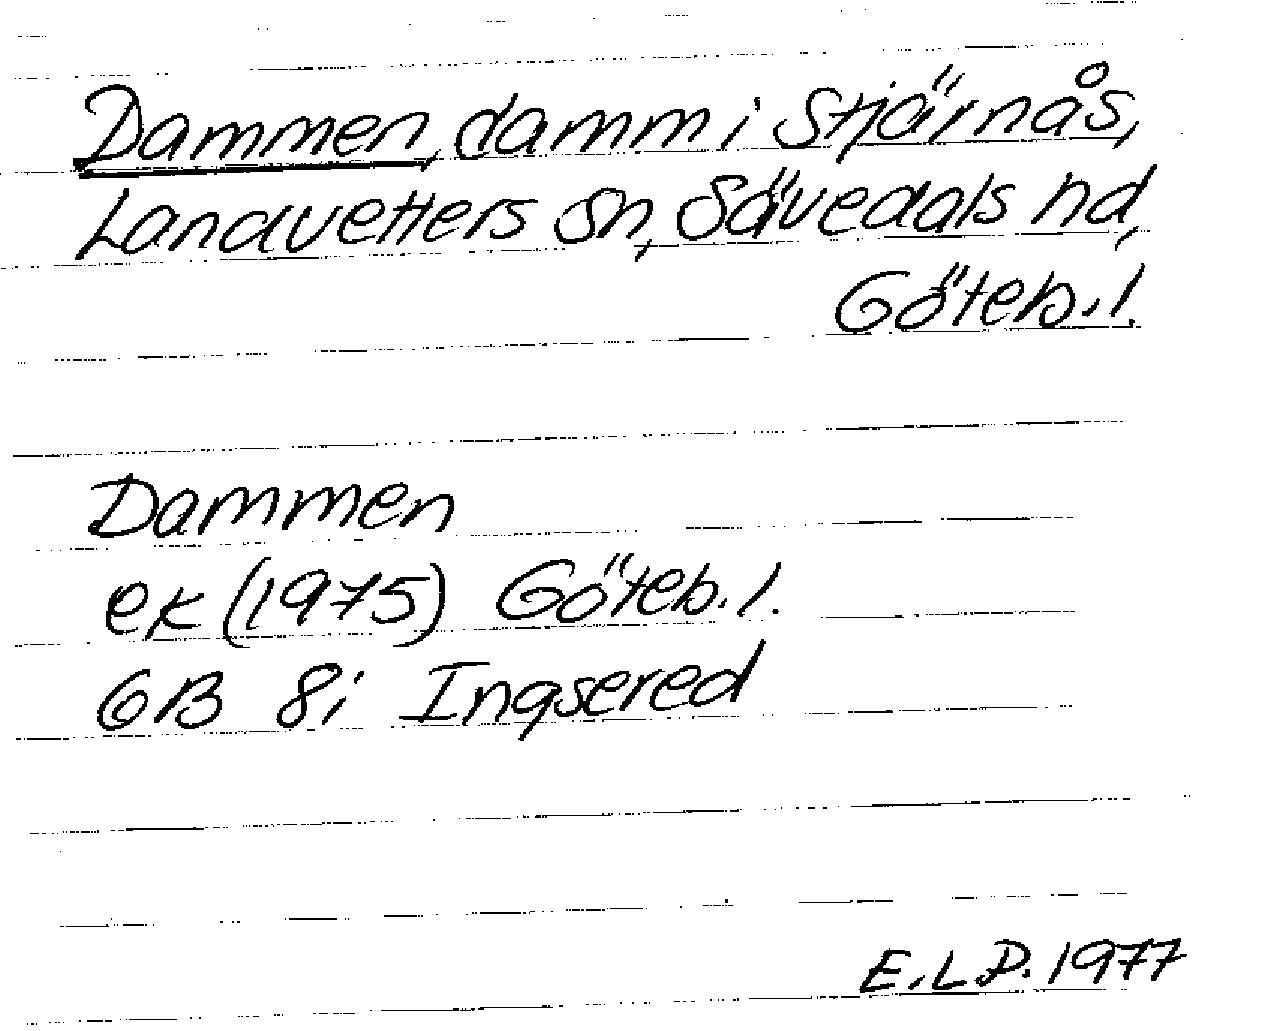 Dammen, damm i Stjärnås,
Landvetters sn, Sävedals hd,
Göteb. l.
Dammen
ek (1975) Göteb. l.
GB 8i Ingsered
E.L.P. 1977